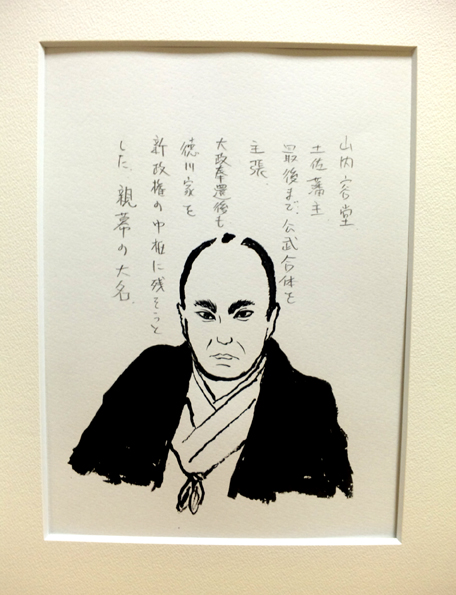 山内容堂
土佐藩主
最後まで、公武合体を
主張、
大政奉還後も
徳川家を
新政権の中枢に残そうと
した、親幕の大名、